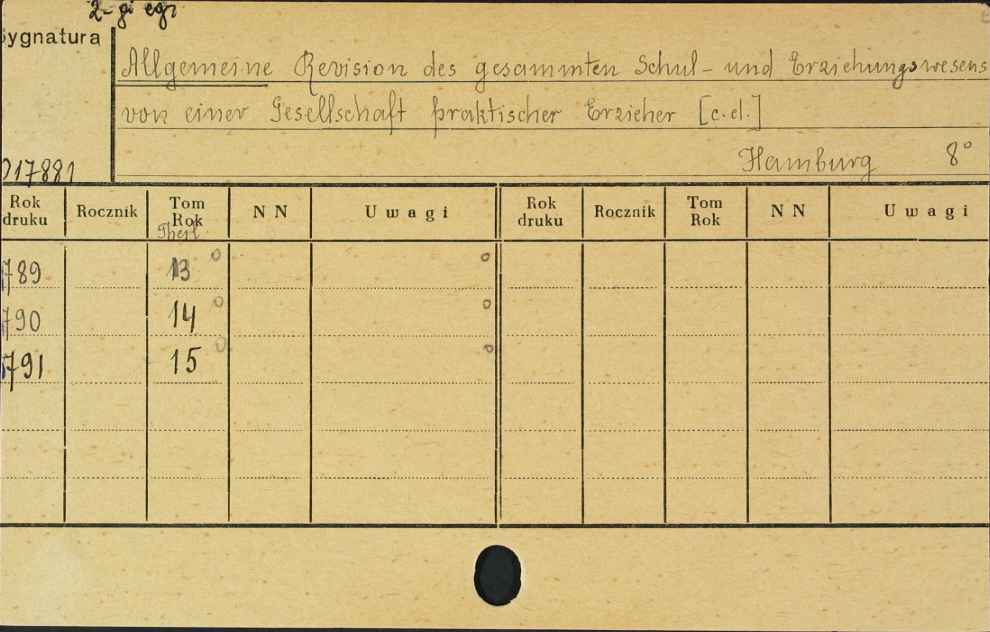 2-gi egz
Sygnatura
Allgemeine Revision des gesammten Schul- und Erziehungswesens
von einer Gesellschaft praktischer Erzieher [c.d.]
Hamburg 8°
017881
Rok druku Rocznik Tom Rok NN Uwagi Rok druku Rocznik Tom Rok NN Uwagi
1789 13
1790 14
1791 15